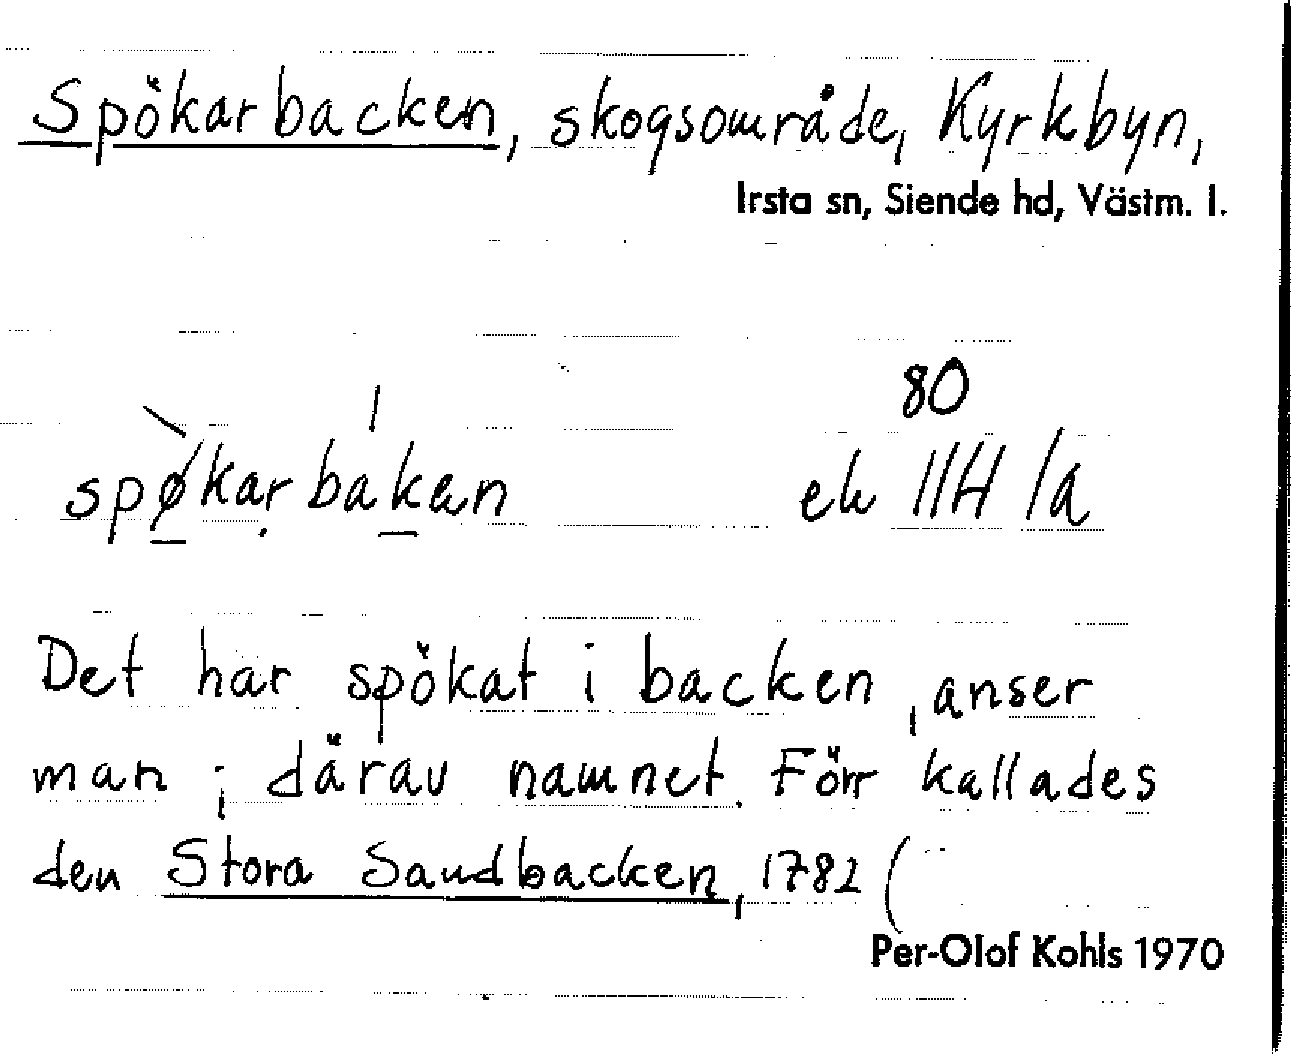 Spökarbacken, skogsområde, Kyrkbyn,
Irsta sn, Siende hd, Västm. l.
80
spøkarbakan ek 11H /a
Det har spökat i backen, anser
man; därav namnet. Förr kallades
den Stora Sandbacken, 1782 (
Per-Olof Kohls 1970